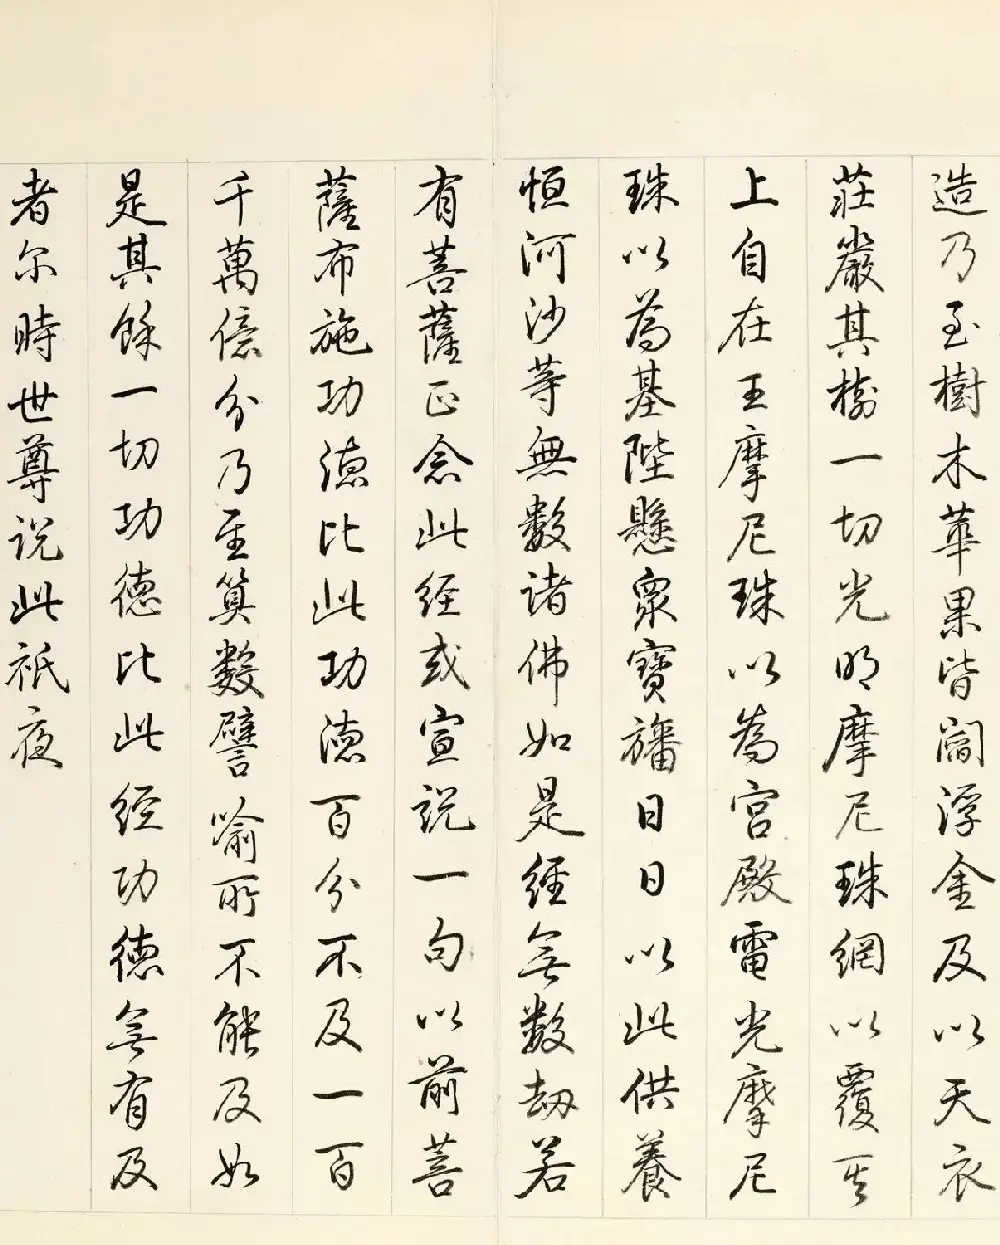 造乃至樹木華果皆閻浮金及以天衣
莊嚴其樹一切光明摩尼珠網以覆其
上自在王摩尼珠以為宮殿電光摩尼
珠以為基陛懸眾寶旛日日以此供養
恒河沙等無數諸佛如是經無數劫若
有菩薩正念此經或宣說一句以前菩
薩布施功德比此功德百分不及一百
千萬億分乃至算數譬喻所不能及如
是其餘一切功德比此經功德無有及
者尔時世尊說此祇夜